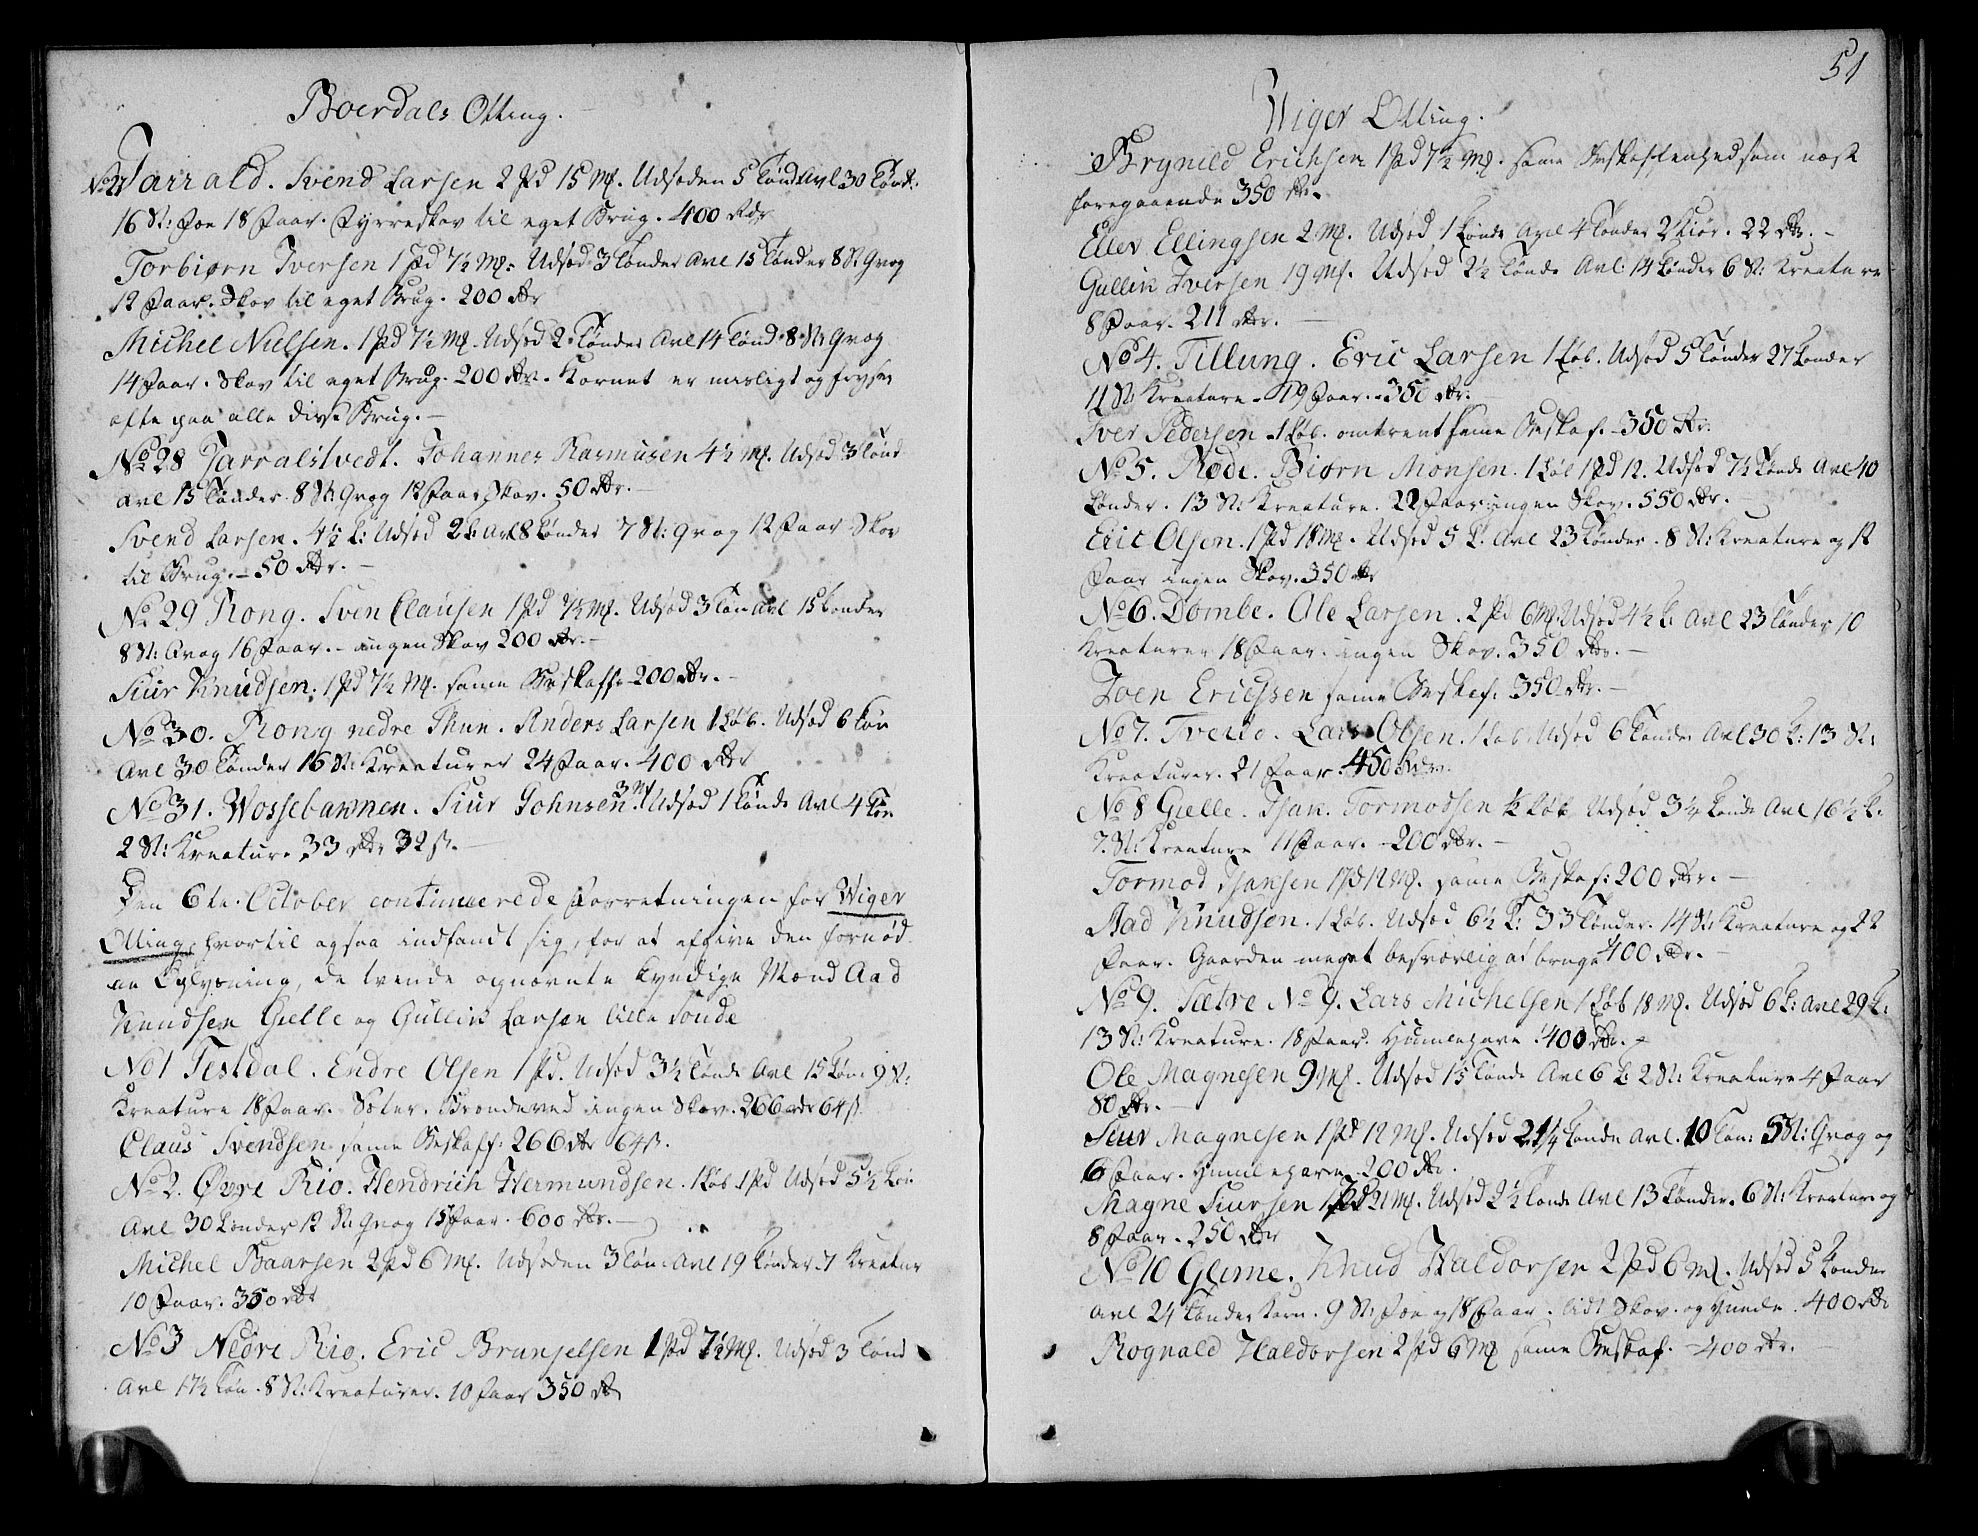 Boerdals Otting.
No 27 Jarrald. Svend Larsen 2 pd 15 Mf. Udsæden 5 Tønd Avl 30 Tønd:
16 St: Fæe 18 Faar. Fyrreskov til eget Brug. 400 Rdr
Torbiørn Iversen 1 pd 7½ Mf. Udsæd 3 Tønder Avl 15 Tønder 8 St Qvæg
12 Faar. Skov til eget Brug. 200 Rdr
Michel Nielsen. 1 pd 7½ Mf. Udsæd 2 Tønder Avl 14 Tønd 8 St Qvæg
14 Faar. Skov til eget Brug. 200 Rdr. Kornet er misligt og fryser
ofte paa alle disse Brug.
No 28 Jarralstvedt. Johannes Rasmusen 4½ Mf. Udsæd 3 Tønd
Avl 15 Tønder. 8 St Qvæg 12 Faar Skov. 50 Rdr.
Svend Larsen. 4½ Udsæd 2 t: Avl 8 Tønder 7 St: Qvæg 12 Faar Skov
til Brug. 50 Rdr.
No 29 Rong. Sven Clausen 1 pd 7½ Mf. Udsæd 3 Tøn Avl 15 Tønder
8 St: Qvæg 16 Faar. ingen Skov 200 Rdr.
Siur Knudsen. 1 pd 7½ Mf. same Beskaff. 200 Rdr.
No 30. Rong nedre Thun. Anders Larsen 1 Løb. Udsæd 6 Tøn
Avl 30 Tønder 16 St: Kreaturer 24 Faar. 400 Rdr
No 31. Wossebavnen. Siur Johnsen 3 Mf Udsæd 1 Tønde Avl 4 Tøn
2 St: Kreature 33 Rdr 32 ß.
Den 6te October continuerede Forretningen for Wiger
Otting, hvortil ogsaa indfandt sig, for at afgive den fornød
ne Oplysning, de tvende opnævnte kyndige Mænd Aad
Knudsen Gielle og Gullik Larsen lille Tønde
No 1 Testdal. Endre Olsen 1 pd. Udsæd 3½ Tønde Avl 15 Tøn: 9 St:
Kreature 18 Faar. Sæter. Brændeved ingen Skov. 266 Rdr 64 ß
Claus Svendsen same Beskaff: 266 Rdr 64 ß.
No 2. Øvre Rio. Hendrich Hermundsen. 1 Løb 1 pd Udsæd 5½ Tøn:
Avl 30 Tønder 12 St Qvæg 15 Faar. 600 Rdr.
Michel Baarsen 2 pd 6 Mf. Udsæden 3 Tøn. Avl 19 Tønder. 7 Kreatur
10 Faar. 350 Rdr
No 3 Nedre Rio. Eric Brynjelsen 1 pd 7½ Mf. Udsæd 3 Tønd
Avl 17½ Tøn. 8 St: Kreaturer. 10 Faar 350 Rdr
51
Wiger Otting.
Brynild Erichsen 1 pd 7½ Mf. same Beskaffenhed som næst
foregaaende 350 Rdr.
Eller Ellingsen 2 Mf. Udsæd 1 Tønde Avl 4 Tønder 2 Kiør. 22 Rdr.
Gullik Iversen 19 Mf. Udsæd 2½ Tønde Avl: 14 Tønder 6 St: Kreature
8 Faar. 211 Rdr.
No 4. Tillung. Eric Larsen 1 Løb. Udsæd 5 Tønder 27 Tønder
11 St: Kreature. 19 Faar. 350 Rdr.
Iver Pedersen 1 Løb. omtrent same Beskaf. 350 Rdr.
No 5. Røde. Biørn Monsen. 1 Løb 1 pd 12. Udsæd 7½ Tønde Avl 40
Tønder. 13 St: Kreature. 22 Faar ingen Skov. 550 Rdr.
Eric Olsen. 1 pd 18 Mf. Udsæd 5 t. Avl 23 Tønder. 8 St: Kreature og 12
Faar ingen Skov. 350 Rdr
No 6. Dømbe. Ole Larsen. 2 pd 6 Mf. Udsæd 4½ t: Avl 23 Tønder 10
Kreaturer 18 Faar. ingen Skov. 350 Rdr.
Joen Ericssen same Beskaf. 350 Rdr.
No 7. Treito. Lars Olsen. 1 Løb. Udsæd 6 Tønder Avl 30 t: 13 St:
Kreaturer. 21 Faar. 450 Rdr.
No 8 Gielle. Isak Tormodsen ½ Løb Udsæd 3½ Tønde Avl 16½ t:
7 St: Kreature 11 Faar. 200 Rdr.
Tormod Isaksen 1 pd 12 Mf. same Beskaf: 200 Rdr.
Aad Knudsen. 1 Løb. Udsæd 6½ t: 33 Tønder. 14 St: Kreature og 22
Faar. Gaarden meget besværlig at bruge 400 Rdr.
No 9. Sætre No 9. Lars Michelsen 1 Løb 18 Mf. Udsæd 6 t: Avl 29 t:
13 St: Kreature. 18 Faar. Humlehave. 400 Rdr.
Ole Magnesen 9 Mf. Udsæd 1½ Tønde Avl 6 t: 2 St: Kreature 4 Faar
80 Rdr.
Siur Magnesen 1 pd 12 Mf. Udsæd 2¼ Tønde Avl. 10 Tøn: 5 St: Qvæg og
6 Faar. Humlehave. 200 Rdr.
Magne Siursen 1 pd 21 Mf. Udsæd 2½ Tønde Avl 13 Tønder. 6 St: Kreature og
8 Faar. 250 Rdr
No 10 Glime. Knud Haldorsen 2 pd 6 Mf. Udsæd 5 Tønder
Avl 24 Tønder Korn. 9 St: Fæe og 18 Faar. lidt Skov. og Hunde. 400 Rdr
Rognald Haldorsen 2 pd 6 Mf same Beskaf. 400 Rdr.